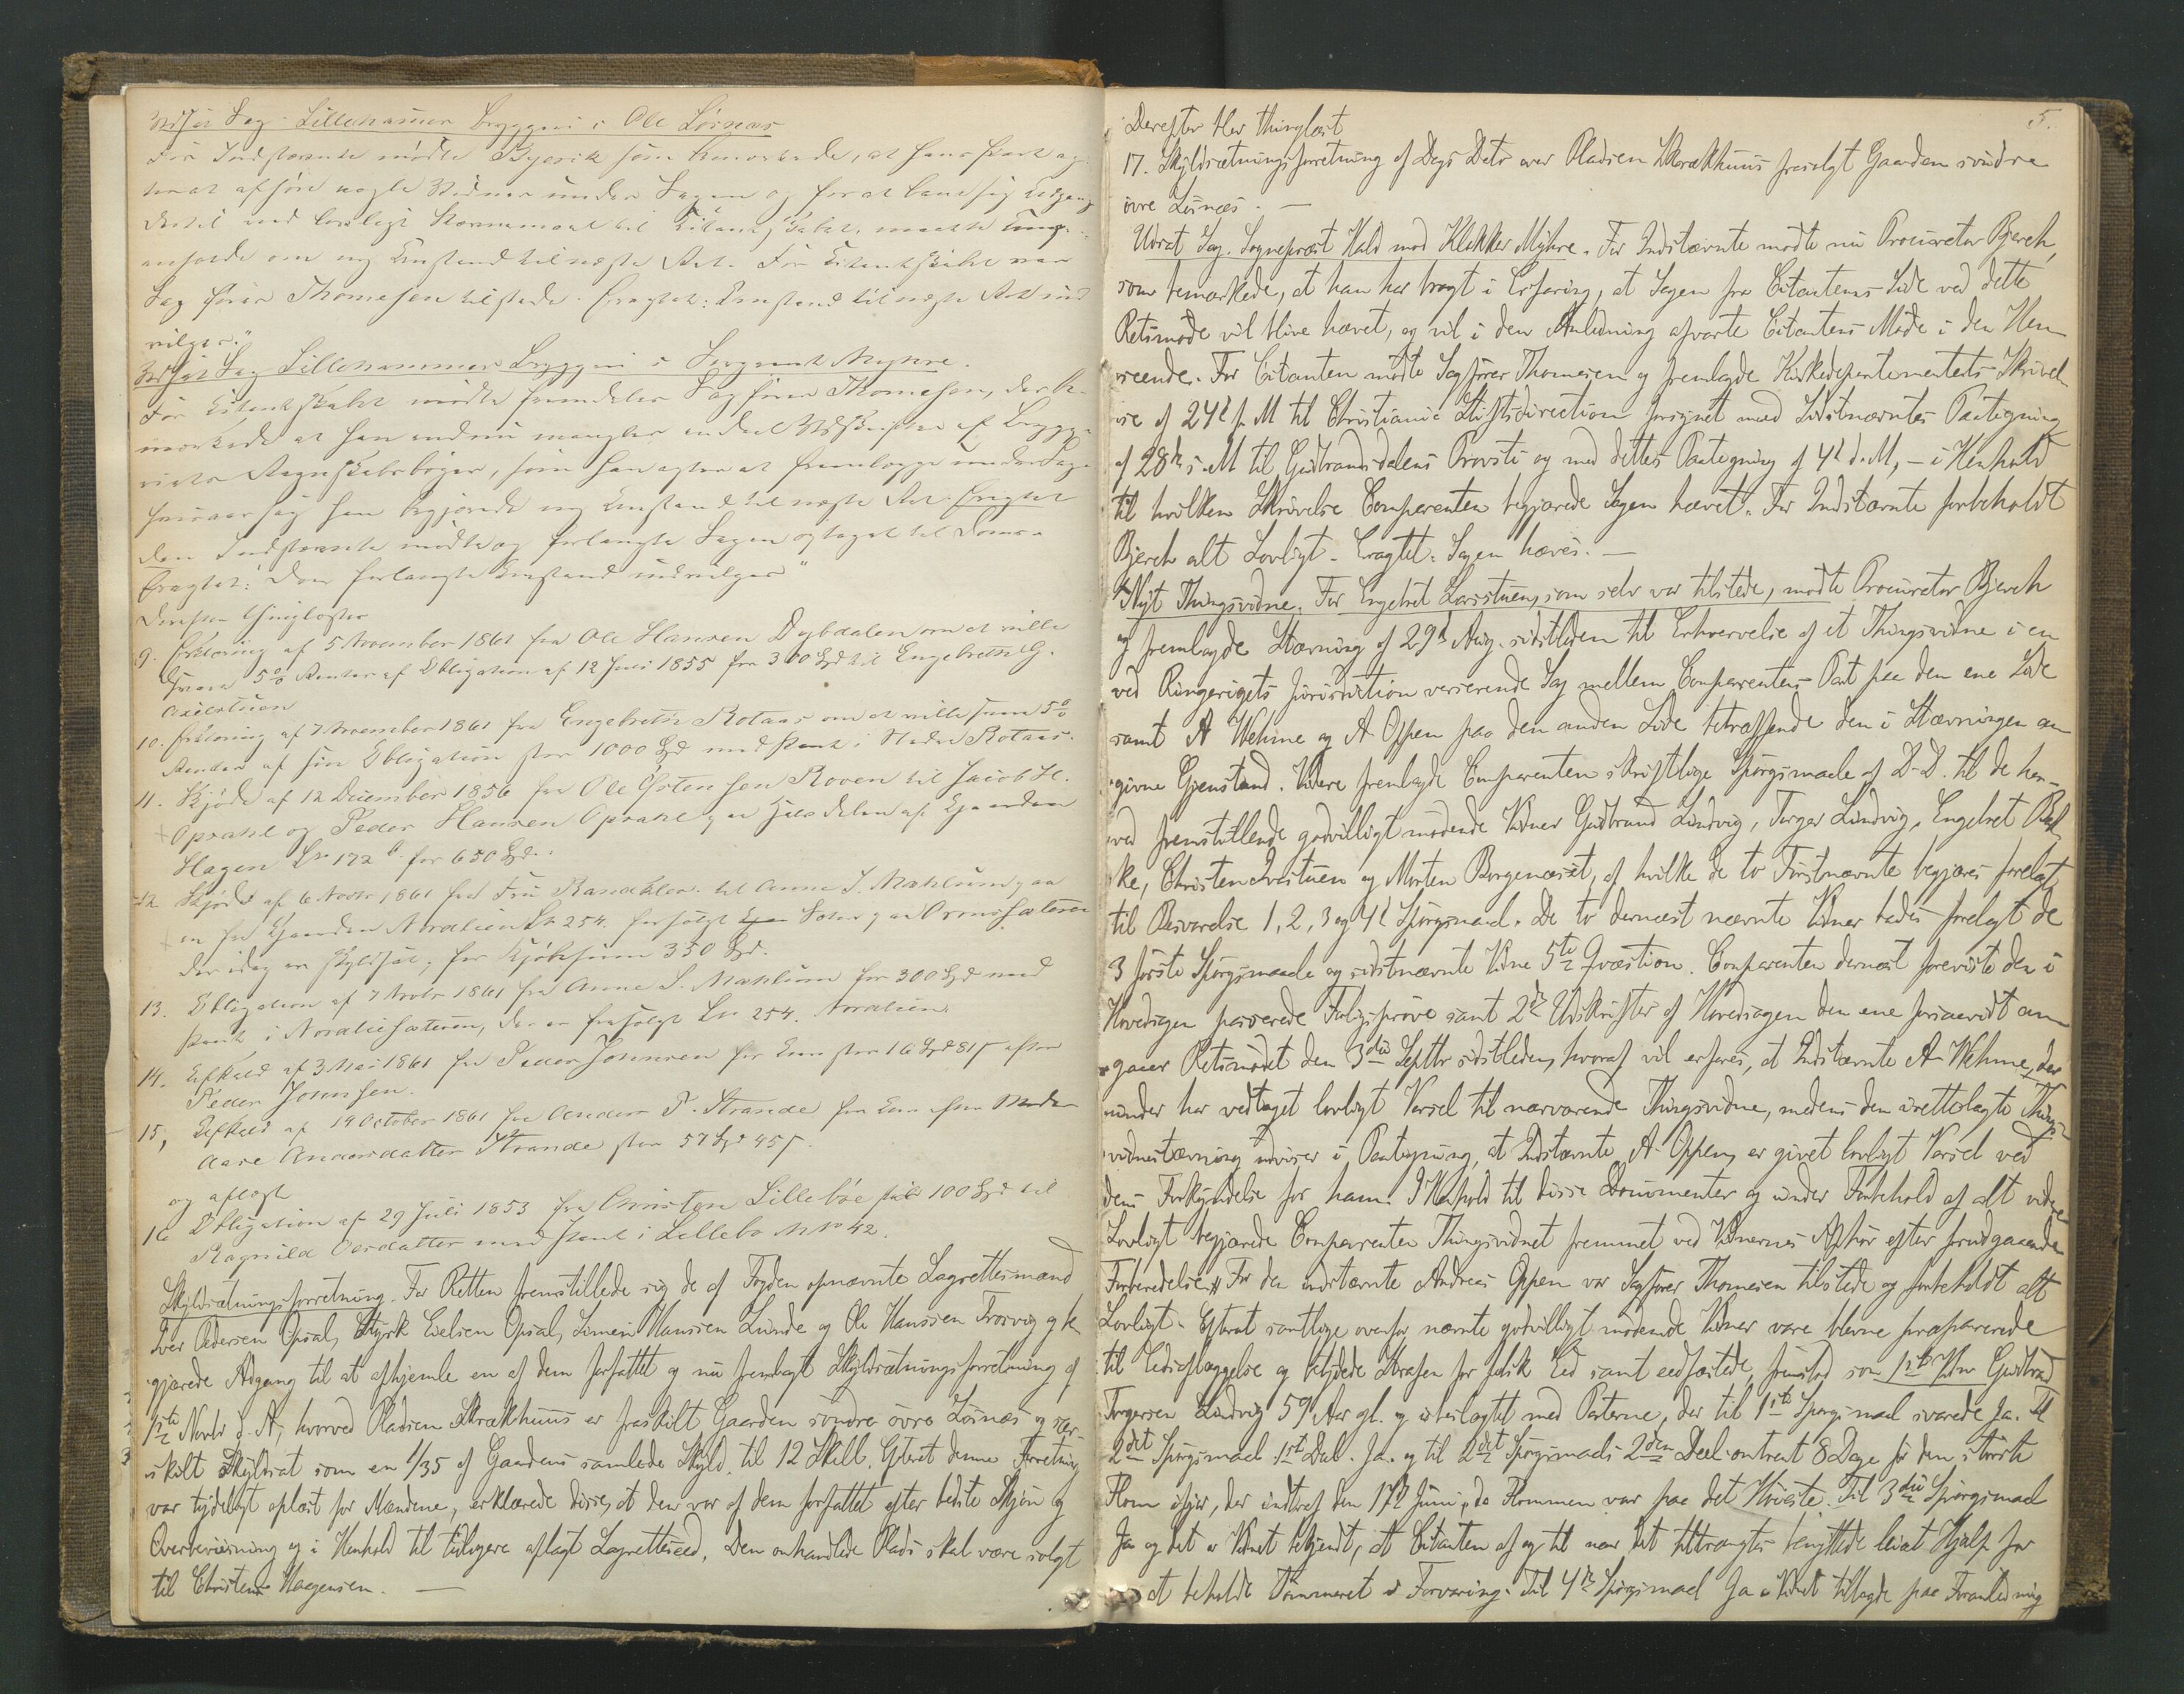 Udsat Sag. Lillehammer Bryggeri : Ole Losnæs
For Indstævnte mødte Bjerck som bemærkede, at hans Part ag-
ter at afhøre nogle Vidner under Sagen og for at lave sig Adgang
dertil ved lovligt Varsel til Citantskabet, maatte
anholde om ny Anstand til næste Ret. For Citantskabet var
Sagfører Thomesen tilstede. Eragtet: Anstand til næste Ret ind-
vilges."
Udsat Sag Lillehammer Bryggeri : Sergeant Myhre.
For Citantskabet mødte fremdeles Sagfører Thomesen, der be-
mærkede at han endnu mangler en deel Udskrifter af Brygge-
riets Regnskabsbøger, som han agter at fremlægge under Sagen
hvorfor han begjærede ny Anstand til næste Ret.
Den Indstævnte mødte og forlangte Sagen optaget til Doms.
Eragtet: "Den forlangte Anstand indvilges"
Derefter thinglæstes
9. Erklæring af 5 November 1861 fra Ole Hansen Dybdalen om at ville
svare 5 % Renter af Obligation af 12 Juli 1855 for 300 Spd til Engebreth G.
10. Erklæring af 7 November 1861 fra Engebreth Rotaas om at ville svare 5 %
Renter af sin Obligation stor 1000 Spd med Pant i Nedre Rotaas.
11. Skjøde af 12 December 1856 fra Ole Østensen Roven til Jacob H.
Opsahl og Peder Hansen Opsahl paa Halvdelen af Gaarden
Hagen Lno 172 b for 650 Spd.
12 Skjøde af 6 Novbr 1861 fra Fru til Anne S. Mæhlum paa
en fra Gaarden Nordlien Lno 254. frasolgt Sæter
der idag er skyldsat, for Kjøbesum 350 Spd.
13. Obligation af 7 Novbr 1861 fra Anne S. Mæhlum for 300 Spd med
Pant i Nordliesæteren, der er frasolgt Lno 254. Nordlien.
14. Afkald af 3 Mai 1861 fra Peder Johnsen for Arv stor 16 Spd 81 s efter
Peder Johnsen.
15, Afkald af 19 October 1861 fra Anders P. Strande for Arv efter Moder
Aase Andersdatter Strande stor 57 Spd 45 s.
og aflæst
16 Obligation af 29 Juli 1853 fra Christen Lillebøe for 100 Spd til
Ragnild Olesdatter med Pant i Lillebø No 42.
Skyldsætningsforretning. For Retten fremstillede sig de af Fogden opnævnte Lagrettesmænd
Iver Pedersen Opsal, Styrk Eielsen Opsal, Simen Hansen Lunde og Ole Hanssen Frosvig og be-
gjærede Adgang til at afhjemle en af dem forfattet og nu fremlagt Skyldsætningsforretning af
1ste Novbr d. A, hvorved Pladsen Skrækhuus er fraskilt Gaarden søndre øvre Losnæs og sær-
skilt skyldsat som en 1/35 af Gaardens samlede Skyld, til 12 Skill. Efterat denne Forretning
var tydeligt oplæst for Mændene, erklærede disse, at den var af dem forfattet efter bedste Skjøn og
Overbeviisning og i Henhold til tidligere aflagt Lagretteseed. Den omhandlede Plads skal være solgt
til Christen Haagensen.
5.
Derefter blev thinglæst
17. Skyldsætningsforretning af Dags Dato over Pladsen Skrækhuus frasolgt Gaarden søndre
øvre Losnæs.
Udsat Sag. Sogneprest Hald mod Klokker Myhre. For Indstævnte mødte nu Procurator Bjerch,
som bemærkede, at han har bragt i Erfaring, at Sagen fra Citantens Side ved dette
Retsmøde vil blive hævet, og vil i den Anledning afvarte Citantens Møde i den Hen-
seende. For Citanten mødte Sagfører Thomesen og fremlagde Kirkedepartementets Skrivel-
se af 24de f. M til Christiania Stiftsdirection forsynet med Sidstnævntes Paategning
af 28de s. M til Gudbrandsdalens Provsti og med dettes Paategning af 4de d. M, – i Henhold
til hvilken Skrivelse Comparenten begjærede Sagen hævet. For Indstævnte forbeholdt
Bjerch alt Lovligt. Eragtet: Sagen hæves.
Nyt Thingsvidne. For Engebret Loristuen, som selv var tilstede, mødte Procurator Bjerch
og fremlagde Stævning af 29de Aug. sidstleden til Erhvervelse af et Thingsvidne i en
ved Ringerigets Jurisdiktion verserende Sag mellem Comparentens Part paa den ene Side
samt A Wehme og A Oppen paa den anden Side betræffende den i Stævningen an-
givne Gjenstand. Videre fremlagde Comparenten skriftlige Spørgsmaale af D.D. til de her-
ved fremstillende godvilligt mødende Vidner Gudbrand Lindvig, Torger Lindvig, Engebret Bak-
ke, Christen Ivestuen og Morten Borgenæset, af hvilke de to Førstnævnte begjæres forelagt
til Besvarelse 1, 2, 3 og 4de Spørgsmaal. De to dernæst nævnte Vidner bedes forelagt de
3 første Spørgsmaale og sidstnævnte Vidne 5te Qvæstion. Comparenten dernæst foreviste den i
Hovedsagen passerede Følgeprøve samt 2de Udskrifter af Hovedsagen den ene forsaavidt an-
gaaer Retsmødet den 3die Septbr sidstleden, hvoraf vil erfares, at Indstævnte A Wehme, der-
under har vedtaget lovligt Varsel til nærværende Thingsvidne, medens den irettelagte Things-
vidnestævning udviser i Paategning, at Indstævnte A Oppen, er givet lovligt Varsel ved
dens Forkyndelse for ham. I Henhold til disse Documenter og under Forbehold af alt videre
Lovligt begjærede Comparenten Thingsvidnet fremmet ved Vidnernes Afhør efter forudgaaende
Forberedelse. For den indstævnte Andreas Oppen var Sagfører Thomesen tilstede og forbeholdt alt
Lovligt. Efterat samtlige ovenfor nævnte godvilligt mødende Vidner vare blevne præparerede
til Eedsaflæggelse og betydede Straffen for falsk Eed samt eedfæstede, fremstod som 1ste Vidne Gudbrand
Torgersen Lindvig 59 Aar gl. og ubeslægtet med Parterne, der til 1ste Spørgsmaal svarede Ja. Til
2det Spørgsmaal 1ste Deel. Ja. og til 2det Spørgsmaals 2den Deel omtrent 8 Dage før den største
Flom ifjor, der indtraf den 17de Juni, da Flommen var paa det Høieste. Til 3die Spørgsmaal
Ja og det er Vidnet bekjendt, at Citanten af og til naar det tiltrængtes benyttede leiet Hjælp for
at beholde Tømmeret i Forvaring. Til 4de Spørgsmaal Ja. Vidnet tillagde paa Foranledning